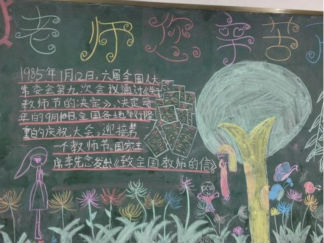 老师您辛苦
1985年1月12日,六届全国人
常委会第九次会议通过《
教师节的决定》,决定每
年的9月10日全国各地教师隆
重的庆祝大会,迎接第
一个教师节,国家主
席李先念发出《致全国教师的信》